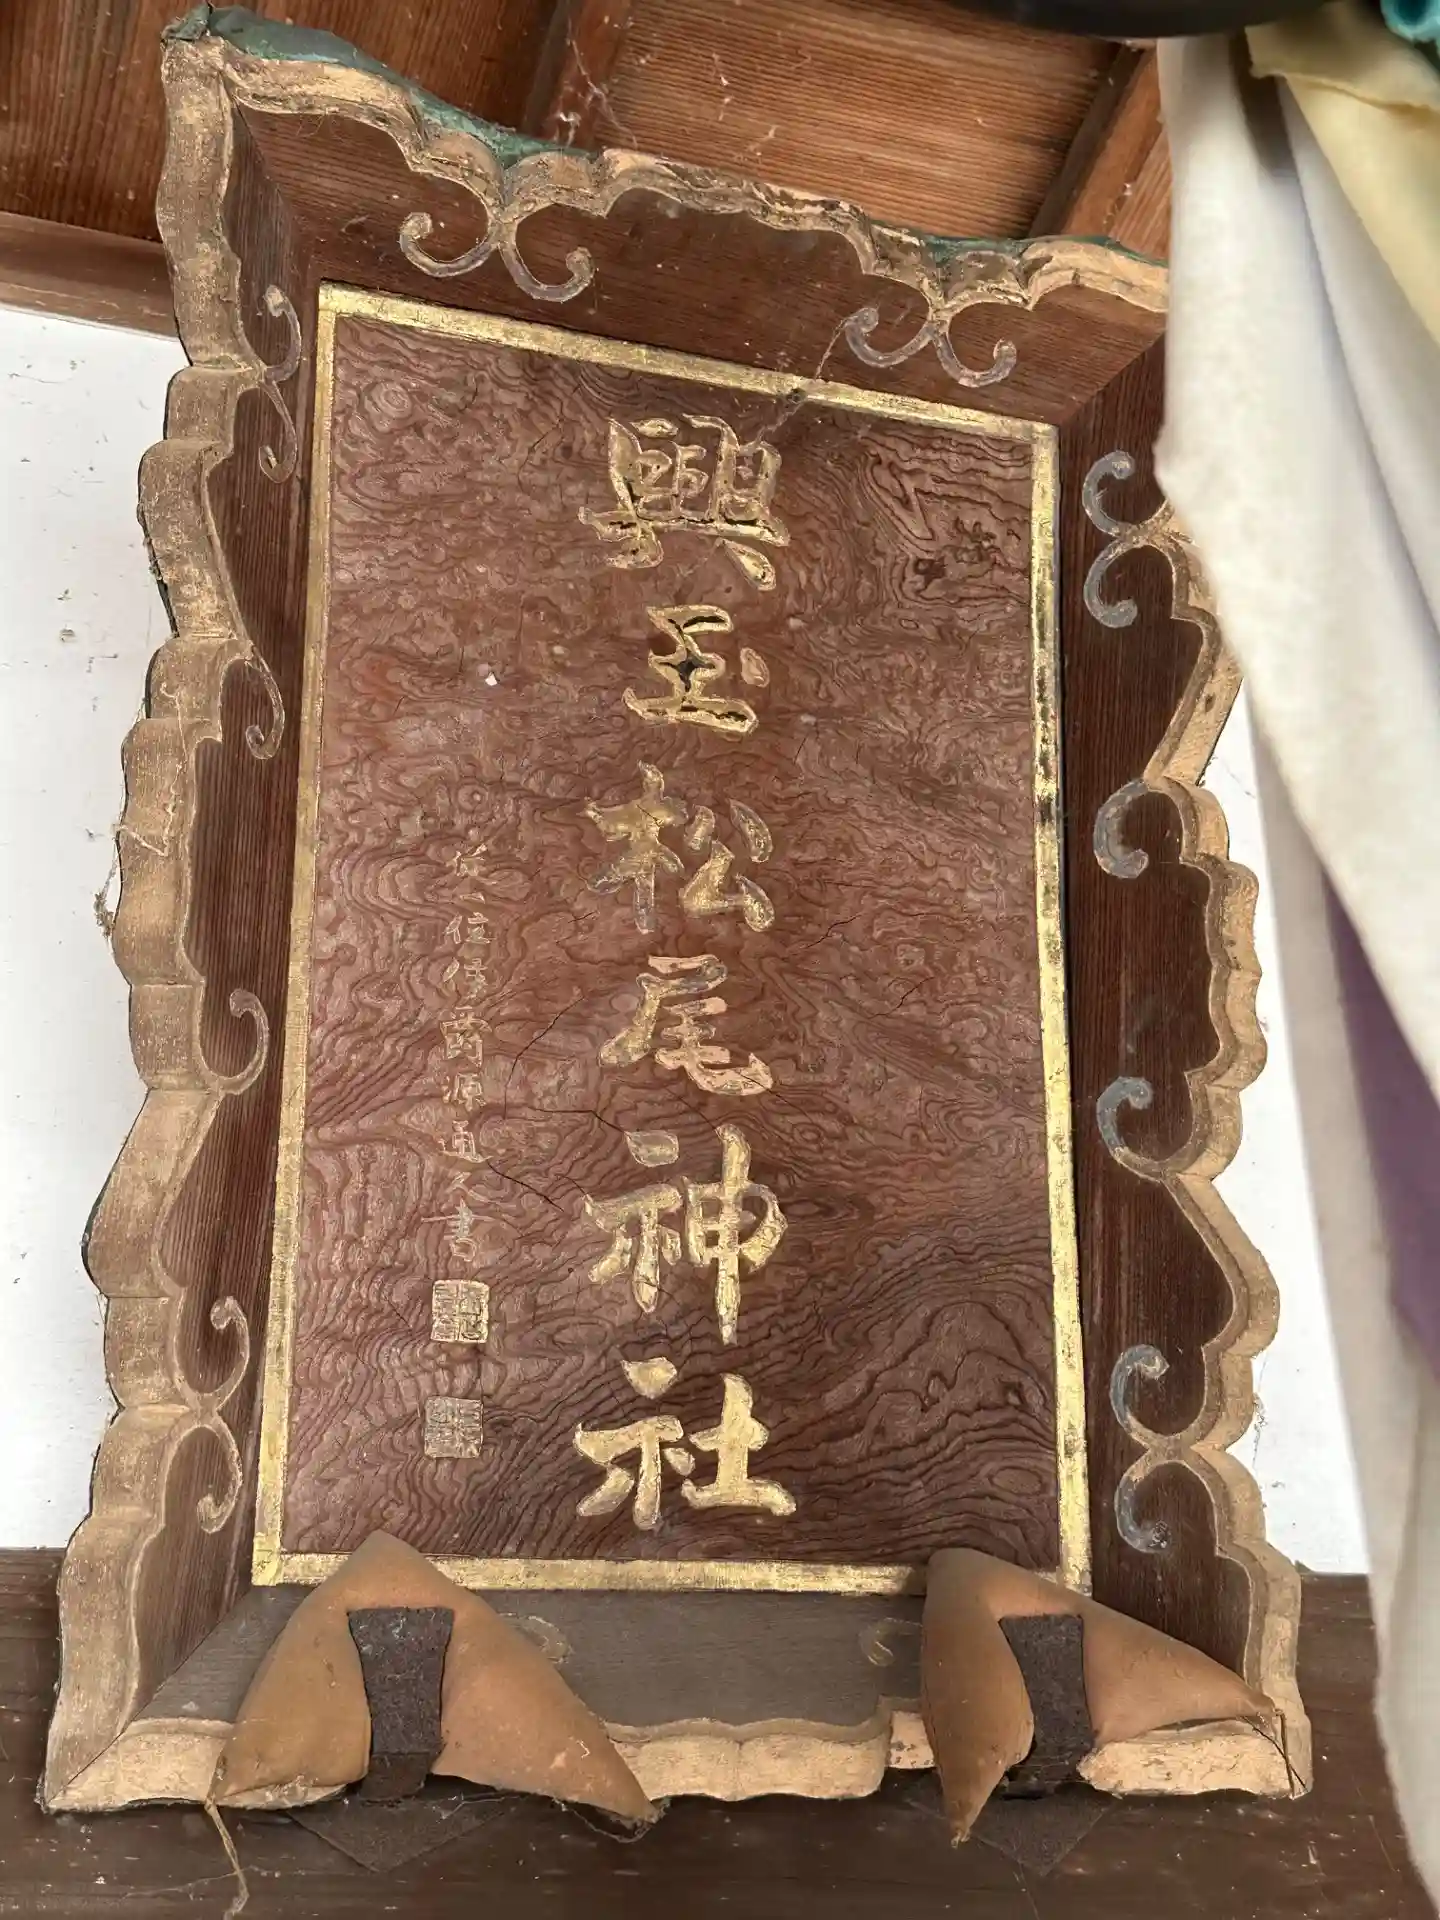 興玉松尾神社
従一位侯爵源通久書